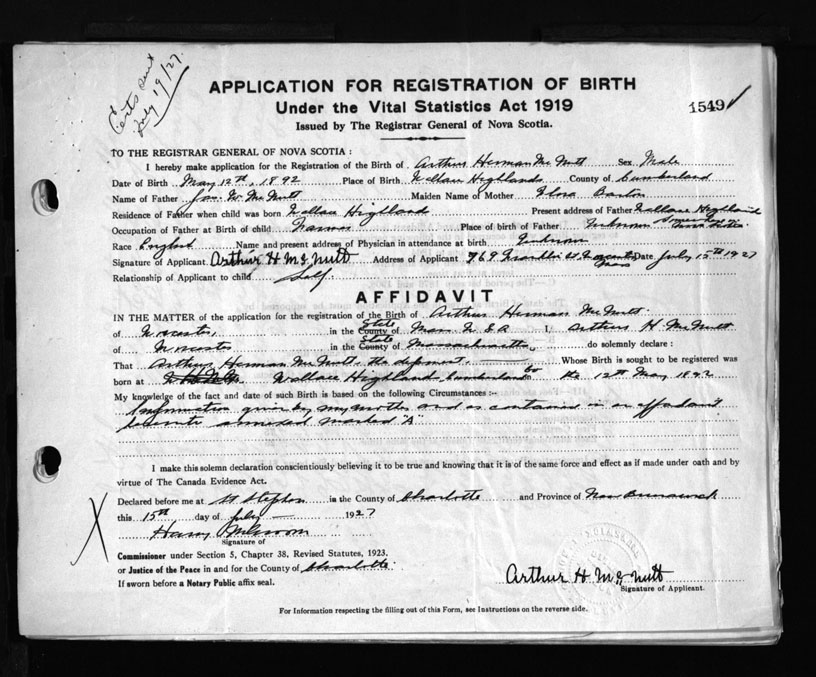 Certs sent
July 19/27.
APPLICATION FOR REGISTRATION OF BIRTH
Under the Vital Statistics Act 1919
1549
Issued by The Registrar General of Nova Scotia.
TO THE REGISTRAR GENERAL OF NOVA SCOTIA :
I hereby make application for the Registration of the Birth of Arthur Herman McNutt Sex Male
Date of Birth May 12th, 1892 Place of Birth Wallace Highlands County of Cumberland
Name of Father Jas. W. McNutt Maiden Name of Mother Flora
Residence of Father when child was born Wallace Highland Present address of Father Wallace Highland
Occupation of Father at Birth of child Farmer Place of birth of Father Unknown Somewhere in Nova Scotia
Race English Name and present address of Physician in attendance at birth Unknown
Signature of Applicant. Arthur H McNutt Address of Applicant 769 Franklin St Worcester Mass Date July 15th 1927
Relationship of Applicant to child Self
AFFIDAVIT
IN THE MATTER of the application for the registration of the Birth of Arthur Herman McNutt
of Worcester, in the County State of Mass U.S.A I, Arthur H McNutt
of Worcester in the County State of Massachusetts do solemnly declare :
That Arthur Herman McNutt, the deponent, Whose Birth is sought to be registered was
born at Wallace Highland, Cumberland Co the 12th May 1892
My knowledge of the fact and date of such Birth is based on the following Circumstances :–
Information given by my mother and as contained in an affidavit
hereunto annexed marked "A"
I make this solemn declaration conscientiously believing it to be true and knowing that it is of the same force and effect as if made under oath and by
virtue of The Canada Evidence Act.
Declared before me at St Stephen in the County of Charlotte and Province of New Brunswick
this 15th day of July 1927
Harry
Signature of
Commissioner under Section 5, Chapter 38, Revised Statutes, 1923.
or Justice of the Peace in and for the County of Charlotte
If sworn before a Notary Public affix seal.
Arthur H McNutt
Signature of Applicant.
For Information respecting the filling out of this Form, see Instructions on the reverse side.